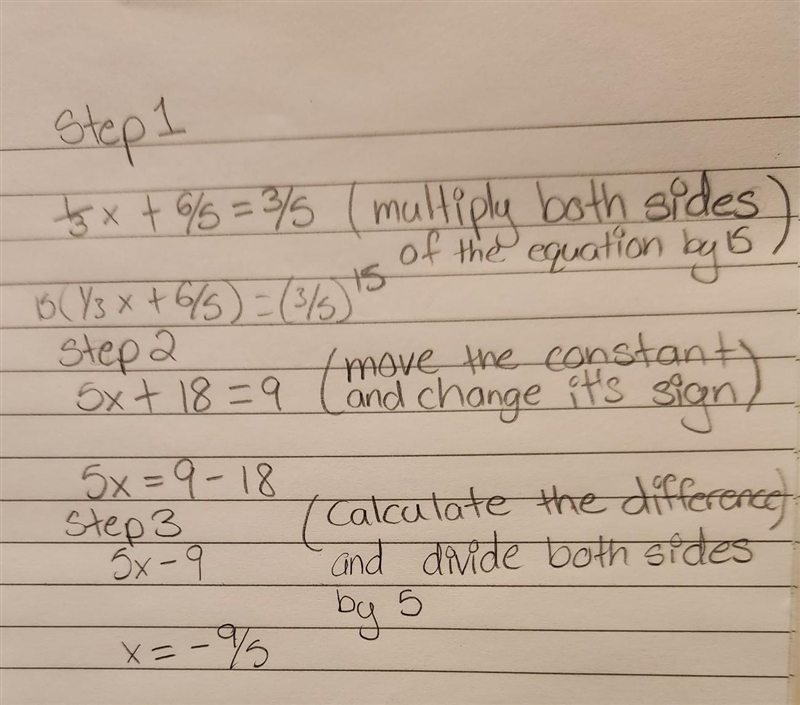 Step 1
1/3 x + 6/5 = 3/5 (multiply both sides
of the equation by 15)
15(1/3 x + 6/5) = (3/5)15
Step 2
(move the constant
5x + 18 = 9 and change it's sign)
5x = 9 - 18
Step 3 (Calculate the difference)
5x - 9 and divide both sides
by 5
x = - 9/5